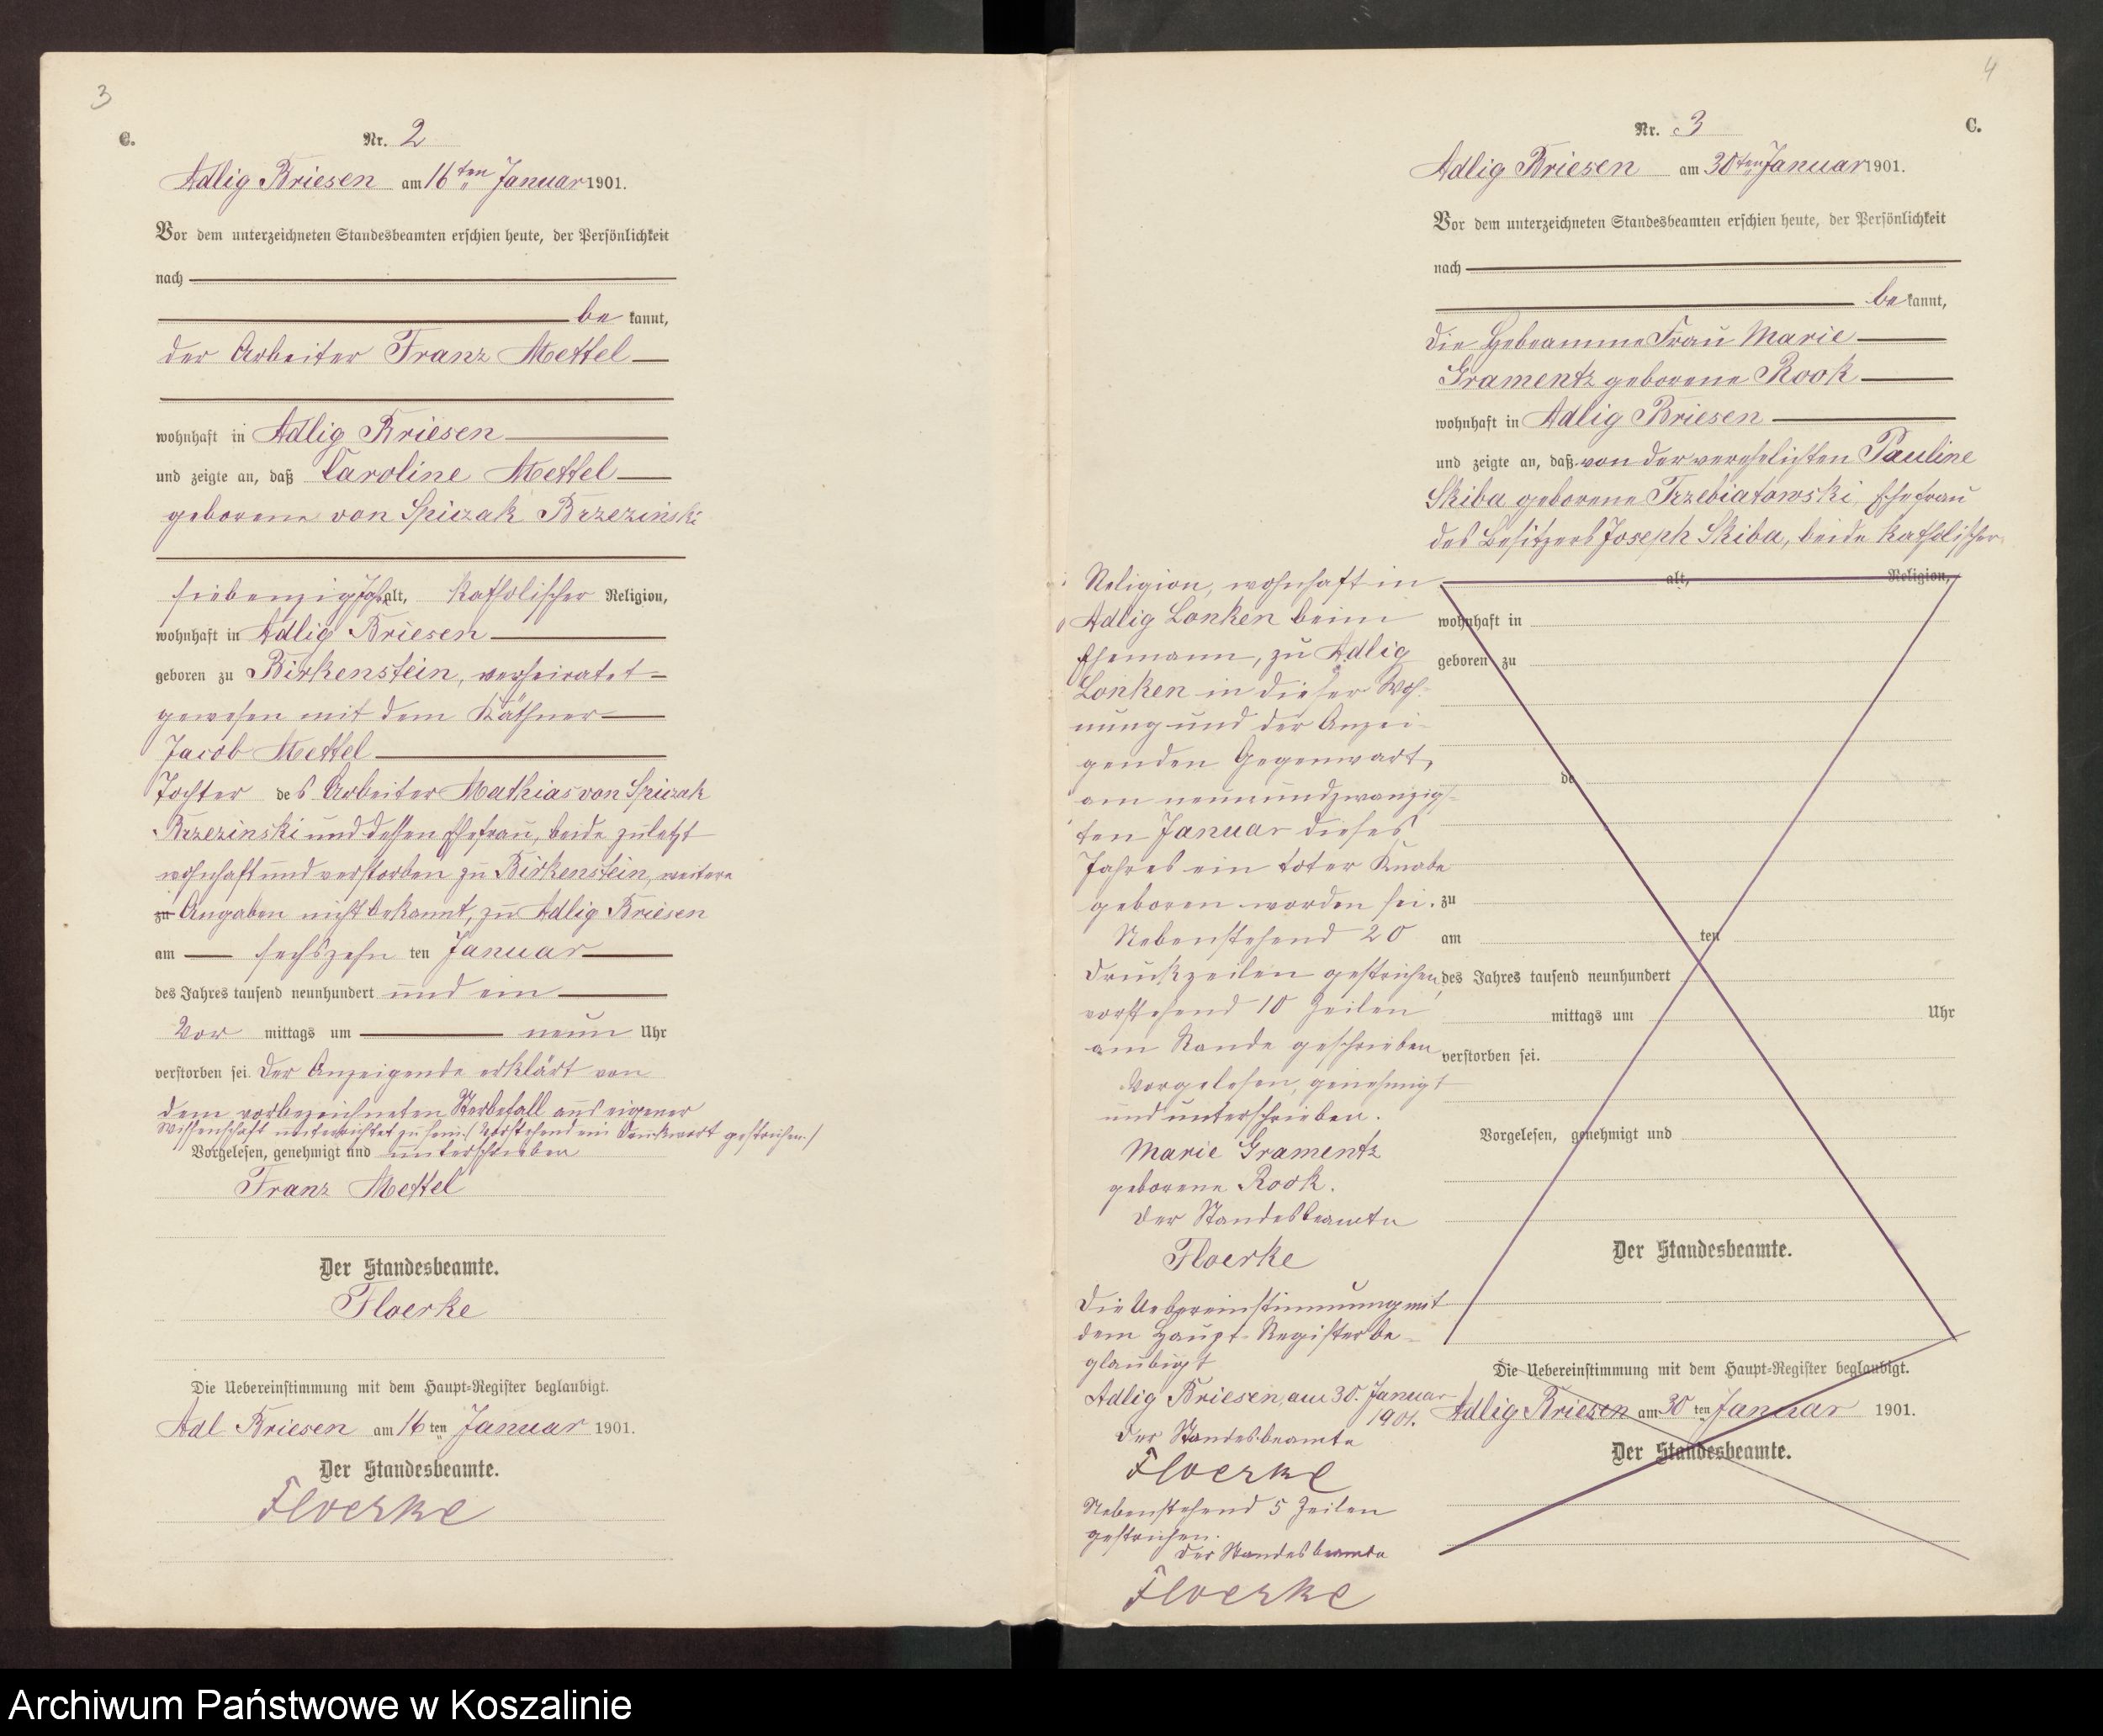 3
C.
Nr. 2
Adlig Briesen am 16ten Januar 1901.
Vor dem unterzeichneten Standesbeamten erschien heute, der Persönlichkeit
nach
be kannt,
der Arbeiter Franz Mettel
wohnhaft in Adlig Briesen
und zeigte an, daß Caroline Mettel
geborene von Spiczak Brzezinski
siebenzig Jahr alt, katholischer Religion,
wohnhaft in Adlig Briesen
geboren zu Birkenstein, verheiratet
gewesen mit dem Käthner
Jacob Mettel
Tochter des Arbeiter Mathias von Spiczak
Brzezinski und dessen Ehefrau, beide zuletzt
wohnhaft und verstorben zu Birkenstein, weitere
zu Angaben nicht bekannt, zu Adlig Briesen
am sechszehn ten Januar
des Jahres tausend neunhundert und ein
Vor mittags um neun Uhr
verstorben sei. Der Anzeigende erklärt von
dem vorbezeichneten Sterbefall aus eigener
Wissenschaft unterrichtet zu sein./ Vorstehend ein Druckwort gestrichen./
Vorgelesen, genehmigt und unterschrieben
Franz Mettel
Der Standesbeamte.
Floerke
Die Uebereinstimmung mit dem Haupt-Register beglaubigt.
Adl Briesen am 16ten Januar 1901.
Der Standesbeamte.
Floerke
4
Nr. 3
C.
Adlig Briesen am 30ten Januar 1901.
Vor dem unterzeichneten Standesbeamten erschien heute, der Persönlichkeit
nach
be kannt,
die Hebeamme Frau Marie
Gramentz geborene Rook
wohnhaft in Adlig Briesen
und zeigte an, daß von der verehelichten Pauline
Skiba geborene Trzebiatowski, Ehefrau
des Besitzers Joseph Skiba, beide katholischer
Religion, wohnhaft in
Adlig Lonken beim
Ehemann, zu Adlig
Lonken in dieser Woh-
nung und der Anzei-
genden Gegenwart,
am neunundzwanzig-
ten Januar dieses
Jahres ein toter Knabe
geboren worden sei.
Nebenstehend 20
Druckzeilen gestrichen,
vorstehend 10 Zeilen
am Rande geschrieben
Vorgelesen, genehmigt
und unterschrieben.
Marie Gramentz
geborene Rook.
Der Standesbeamte
Floerke
Die Uebereinstimmung mit
dem Haupt-Register be-
glaubigt
Adlig Briesen, am 30. Januar
1901.
Der Standesbeamte
Floerke
Nebenstehend 5 Zeilen
gestrichen.
Der Standesbeamte
Floerke
alt, Religion,
wohnhaft in
geboren zu
de
zu
am ten
des Jahres tausend neunhundert
mittags um Uhr
verstorben sei.
Vorgelesen, genehmigt und
Der Standesbeamte.
Die Uebereinstimmung mit dem Haupt-Register beglaubigt.
Adlig Briesen am 30 ten Januar 1901.
Der Standesbeamte.
Archiwum Państwowe w Koszalinie